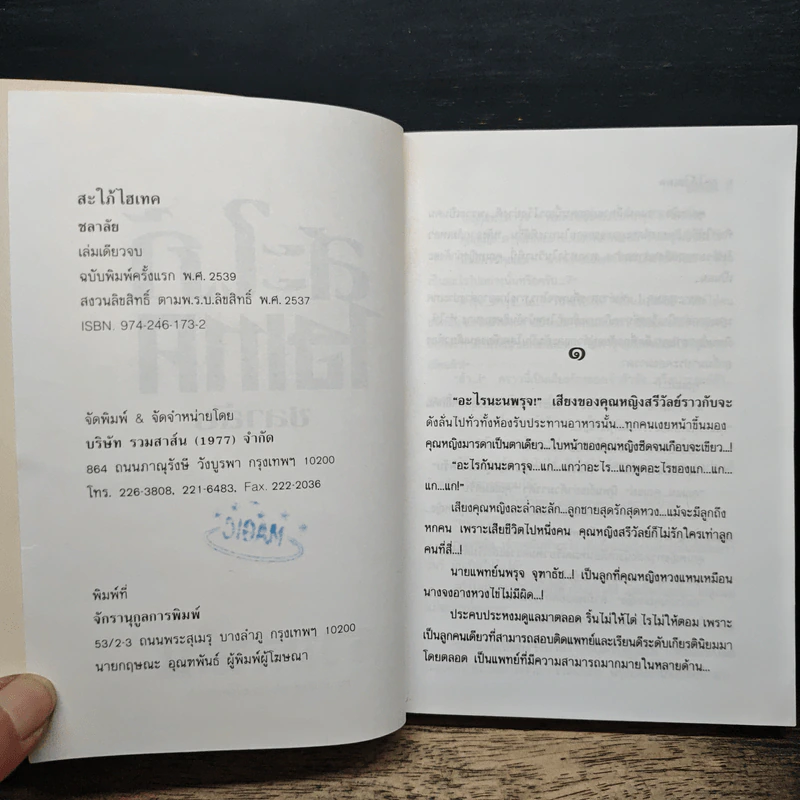 สะใภ้ไฮเทค
ชลาลัย
เล่มเดียวจบ
ฉบับพิมพ์ครั้งแรก พ.ศ. 2539
สงวนลิขสิทธิ์ ตามพ.ร.บ.ลิขสิทธิ์ พ.ศ. 2537
ISBN. 974-246-173-2
จัดพิมพ์ & จัดจำหน่ายโดย
บริษัท รวมสาส์น (1977) จำกัด
864 ถนนภาณุรังษี วังบูรพา กรุงเทพฯ 10200
โทร. 226-3808, 221-6483, Fax. 222-2036
พิมพ์ที่
จักรานุกูลการพิมพ์
53/2-3 ถนนพระสุเมรุ บางลำภู กรุงเทพฯ 10200
นายกฤษณะ อุณฑพันธ์ ผู้พิมพ์ผู้โฆษณา
๑
"อะไรนะนพรุจ!" เสียงของคุณหญิงสรีวัลย์ราวกับจะ
ดังลั่นไปทั่วทั้งห้องรับประทานอาหารนั้น...ทุกคนเงยหน้าขึ้นมอง
คุณหญิงมารดาเป็นตาเดียว...ใบหน้าของคุณหญิงซีดจนเกือบจะเขียว...!
"อะไรกันนะตารุจ...แก...แกว่าอะไร...แกพูดอะไรของแก...แก...
แก...แก!"
เสียงคุณหญิงละล่ำละลัก...ลูกชายสุดรักสุดหวง...แม้จะมีลูกถึง
หกคน เพราะเสียชีวิตไปหนึ่งคน คุณหญิงสรีวัลย์ก็ไม่รักใครเท่าลูก
คนที่สี่...!
นายแพทย์นพรุจ จุฑาธัช...! เป็นลูกที่คุณหญิงหวงแหนเหมือน
นางจงอางหวงไข่ไม่มีผิด...!
ประคบประหงมดูแลมาตลอด ริ้นไม่ให้ไต่ ไรไม่ให้ตอม เพราะ
เป็นลูกคนเดียวที่สามารถสอบติดแพทย์และเรียนดีระดับเกียรตินิยมมา
โดยตลอด เป็นแพทย์ที่มีความสามารถมากมายในหลายด้าน...